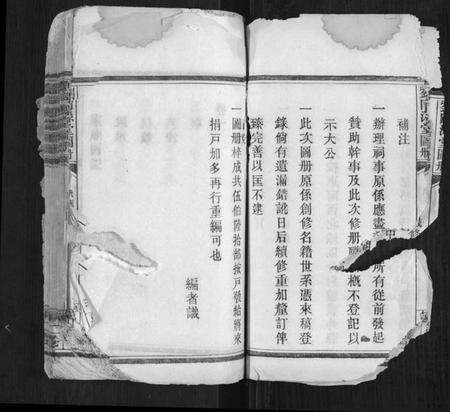 補注
一辦理祠事原係應盡
所有從前發起
贊助幹事及此次修册
概不登記以
示大公
一此次圖册原係創修名籍世系憑來稿登
錄倘有遺漏錯訛日後續修重加釐訂俾
臻完善以匡不逮
一圖册梓成共伍伯陸拾部按戶發給將來
捐戶加多再行重編可也
編者識